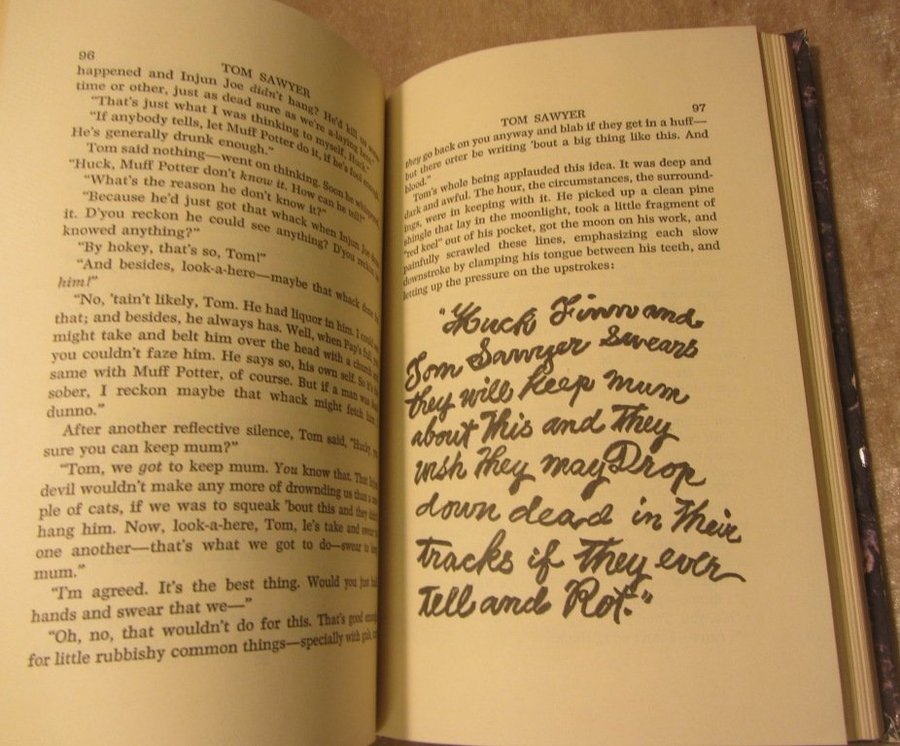 96
TOM SAWYER
happened and Injun Joe didn't hang? He'd kill us some
time or other, just as dead sure as we're a-laying here."
"That's just what I was thinking to myself, Huck."
"If anybody tells, let Muff Potter do it, if he's fool enough.
He's generally drunk enough."
Tom said nothing—went on thinking. Soon he whispered
"Huck, Muff Potter don't know it. How can he tell?"
"What's the reason he don't know it?"
"Because he'd just got that whack when Injun Joe
it. D'you reckon he could see anything? D'you reckon
knowed anything?"
"By hokey, that's so, Tom!"
"And besides, look-a-here—maybe that whack done
him!"
"No, 'tain't likely, Tom. He had liquor in him. I could
that; and besides, he always has. Well, when Pap's full,
might take and belt him over the head with a church
you couldn't faze him. He says so, his own self. So it's
same with Muff Potter, of course. But if a man was
sober, I reckon maybe that whack might fetch him
dunno."
After another reflective silence, Tom said, "Hucky,
sure you can keep mum?"
"Tom, we got to keep mum. You know that. That
devil wouldn't make any more of drownding us than a
ple of cats, if we was to squeak 'bout this and they
hang him. Now, look-a-here, Tom, le's take and swear
one another—that's what we got to do—swear to keep
mum."
"I'm agreed. It's the best thing. Would you just
hands and swear that we—"
"Oh, no, that wouldn't do for this. That's good enough
for little rubbishy common things—specially with
TOM SAWYER
97
they go back on you anyway and blab if they get in a huff—
but there orter be writing 'bout a big thing like this. And
blood."
Tom's whole being applauded this idea. It was deep and
dark and awful. The hour, the circumstances, the surround-
ings, were in keeping with it. He picked up a clean pine
shingle that lay in the moonlight, took a little fragment of
"red keel" out of his pocket, got the moon on his work, and
painfully scrawled these lines, emphasizing each slow
downstroke by clamping his tongue between his teeth, and
letting up the pressure on the upstrokes:
"Huck Finn and
Tom Sawyer swears
they will keep mum
about This and They
wish They may Drop
down dead in Their
tracks if They ever
Tell and Rot."